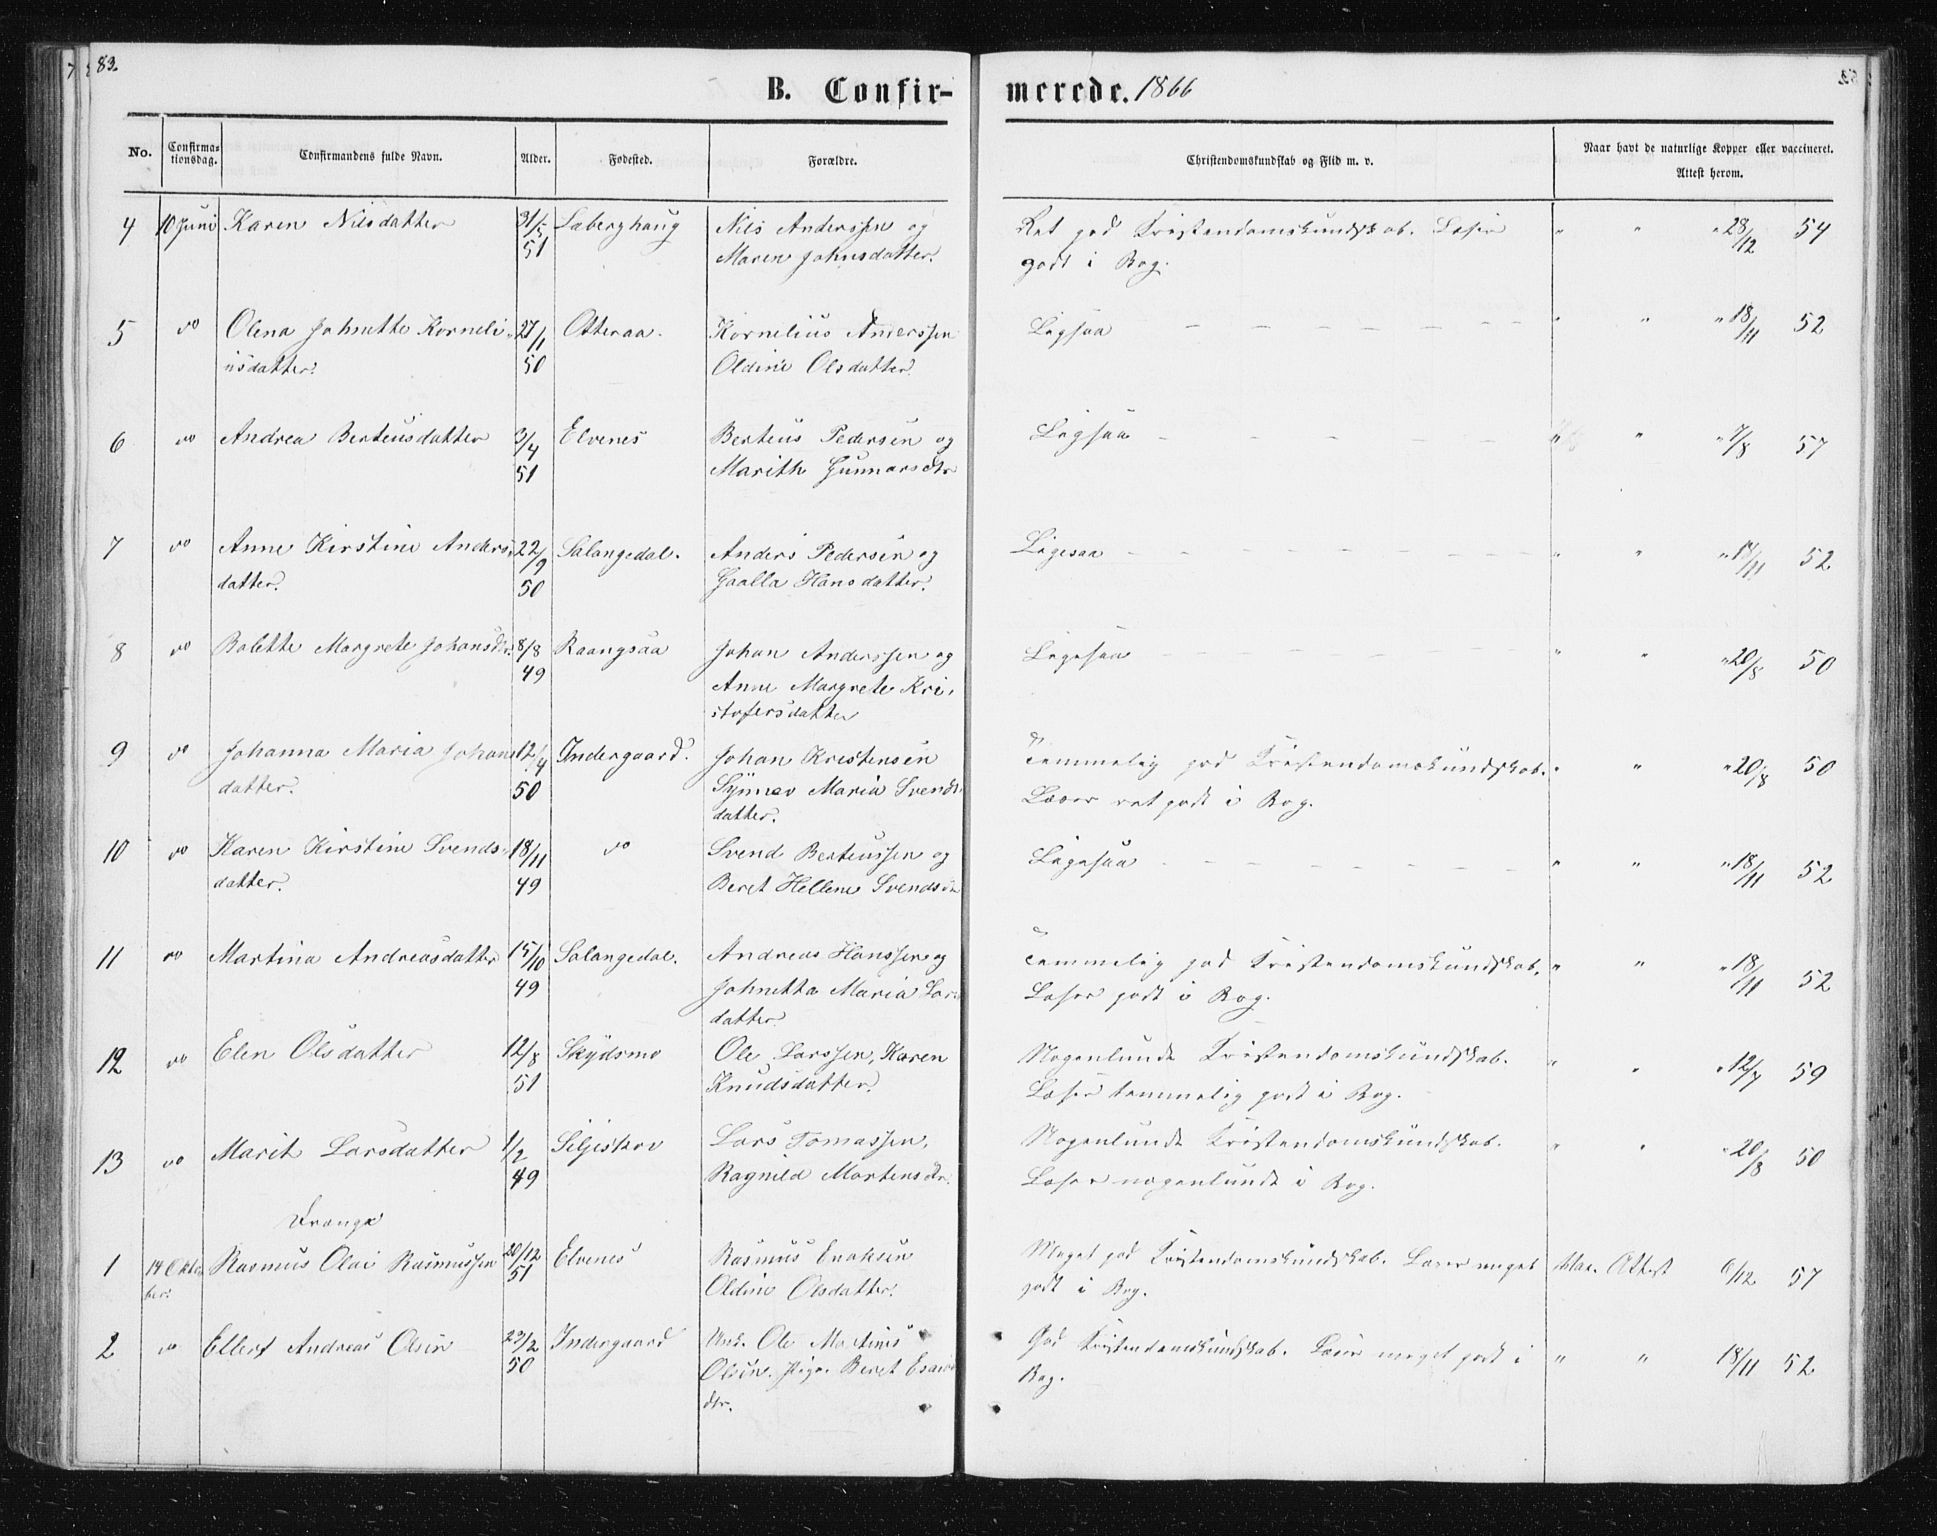 83.
B. Confirmerede. 1866
No. Confirmationsdag. Confirmandens fulde Navn. Alder. Fødested. Forældre. Christendomskundskab og Flid m. v. Naar havt de naturlige Kopper eller vaccineret. Attest herom.
4 10 Juni Karen Nilsdatter 31/5 51 Laberghaug Nils Anderssen og Ret god Kristendomskundskab. Læser " " " 28/12 54
Maren Johnsdatter. godt i Bog.
5 do Olena Johnette Korneli- 27/1 50 Otteraa. Kornelius Anderssen Ligsaa — — — " " " 18/11 52
usdatter. Oldine Olsdatter.
6 do Andrea Berteusdatter 3/4 51 Elvenes Berteus Pedersen og Ligsaa — — — " " " 7/8 57
Marith Gunnarsdtr
7 do Anne Kirstine Anders- 22/9 50 Salangsdal. Anders Pedersen og Ligesaa — — — " " " 18/11 52
datter. Hansdatter.
8 do Bolette Margrete Johansdtr. 8/8 49 Raangsaa Johan Anderssen og Ligesaa — — — " " " 20/8 50
Anne Margrete Kri-
stofersdatter
9 do Johanna Maria Johans 12/4 50 Indergaard. Johan Kristensen Temmelig god Kristendomskundskab. " " " 20/8 50
datter. Synnev Maria Svends- Læser ret godt i Bog.
datter.
10 do Karen Kirstine Svends- 18/11 49 do Svend Berteussen og Ligesaa — — — " " " 18/11 52
datter. Beret Hellene Svendsdtr
11 do Martina Andreasdatter 15/10 49 Salangsdal. Andreas Hanssen og Temmelig god Kristendomskundskab. " " " 18/11 52
Johnetta Maria Lars Læser godt i Bog.
datter.
12 do Elen Olsdatter 12/8 51 Skydsmo Ole Larssen, Karen Nogenlunde Kristendomskundskab. " " " 12/7 59
Knudsdatter. Læser temmelig godt i Bog.
13 do Marit Larsdatter 1/2 49 Siljeskov Lars Tomassen, Nogenlunde Kristendomskundskab. " " " 20/8 50
Ragnild Mortensdtr. Læser nogenlunde i Bog.
Drenge
1 14 Okto- Rasmus Olai Rasmussen 20/12 51 Elvenes Rasmus Enoksen Meget god Kristendomskundskab. Læser meget Attest 6/12 57
ber. Oldine Olsdatter. godt i Bog.
2 do Ellert Andreas Olsen 23/2 50 Indergaard Unk. Ole Martinus God Kristendomskundskab. Læser meget godt i " " 18/11 52
Olsen. Pige. Beret Esais- Bog.
dtr.